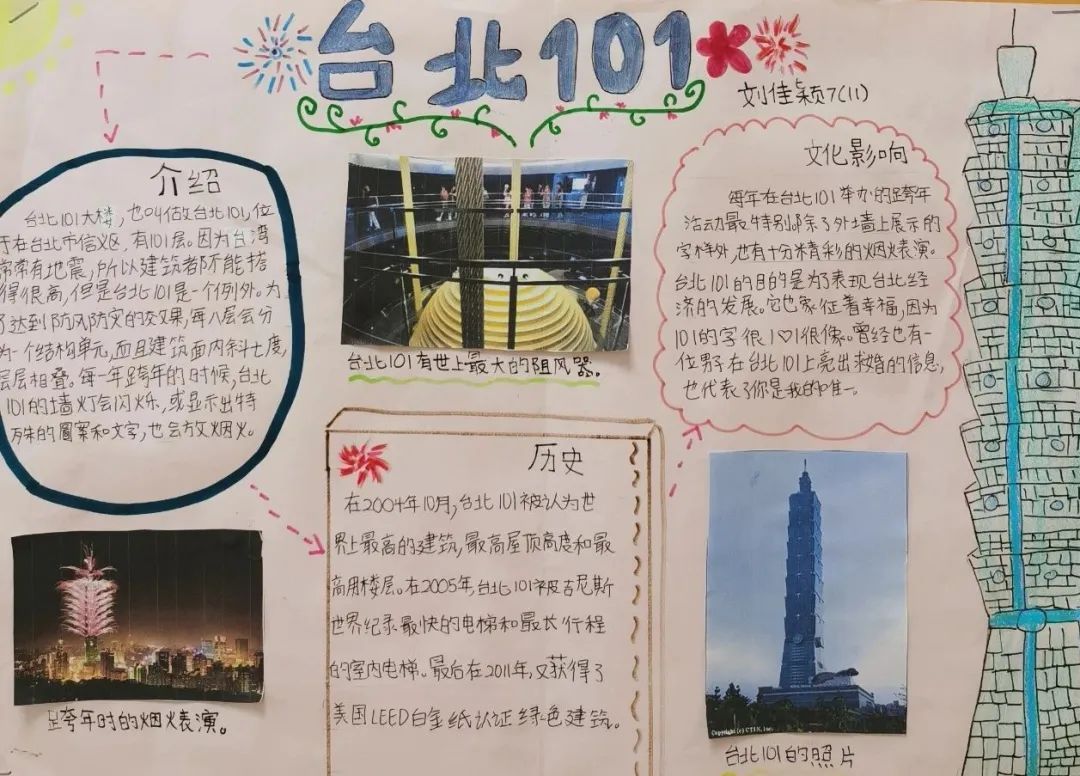 台北101
刘佳颖7(11)
介绍
台北101大楼,也叫做台北101,位
于在台北市信义区,有101层。因为台湾
常常有地震,所以建筑都不能搭
得很高,但是台北101是一个例外。为
了达到防风防灾的效果,每八层会分
为一个结构单元,而且建筑面内斜七度,
层层相叠。每一年跨年的时候,台北
101的墙灯会闪烁,或显示出特
殊的圖案和文字,也会放烟火。
台北101有世上最大的阻风器。
文化影响
每年在台北101举办的跨年
活动最特别。除了外墙上展示的
字样外,也有十分精彩的烟火表演。
台北101的目的是为了表现台北经
济的发展。它也象征着幸福,因为
101的字很1♡1很像。曾经也有一
位男子在台北101上亮出求婚的信息,
也代表了你是我的唯一。
历史
在2004年10月,台北101被认为世
界上最高的建筑,最高屋顶高度和最
高用楼层。在2005年,台北101被吉尼斯
世界纪录最快的电梯和最长行程
的室内电梯。最后在2011年,又获得了
美国LEED白金纸认证绿色建筑。
跨年时的烟火表演。
Copyright (c) CTIN, Inc.
台北101的照片